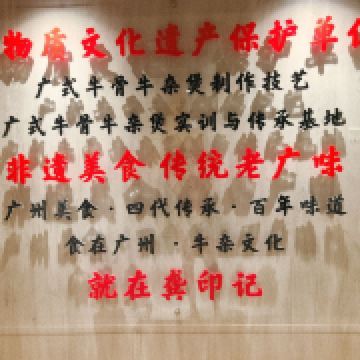 物质文化遗产保护单位
广式牛骨牛杂煲制作技艺
广式牛骨牛杂煲实训与传承基地
非遗美食 传统老广味
广州美食·四代传承·百年味道
食在广州·牛杂文化
就在龚印记